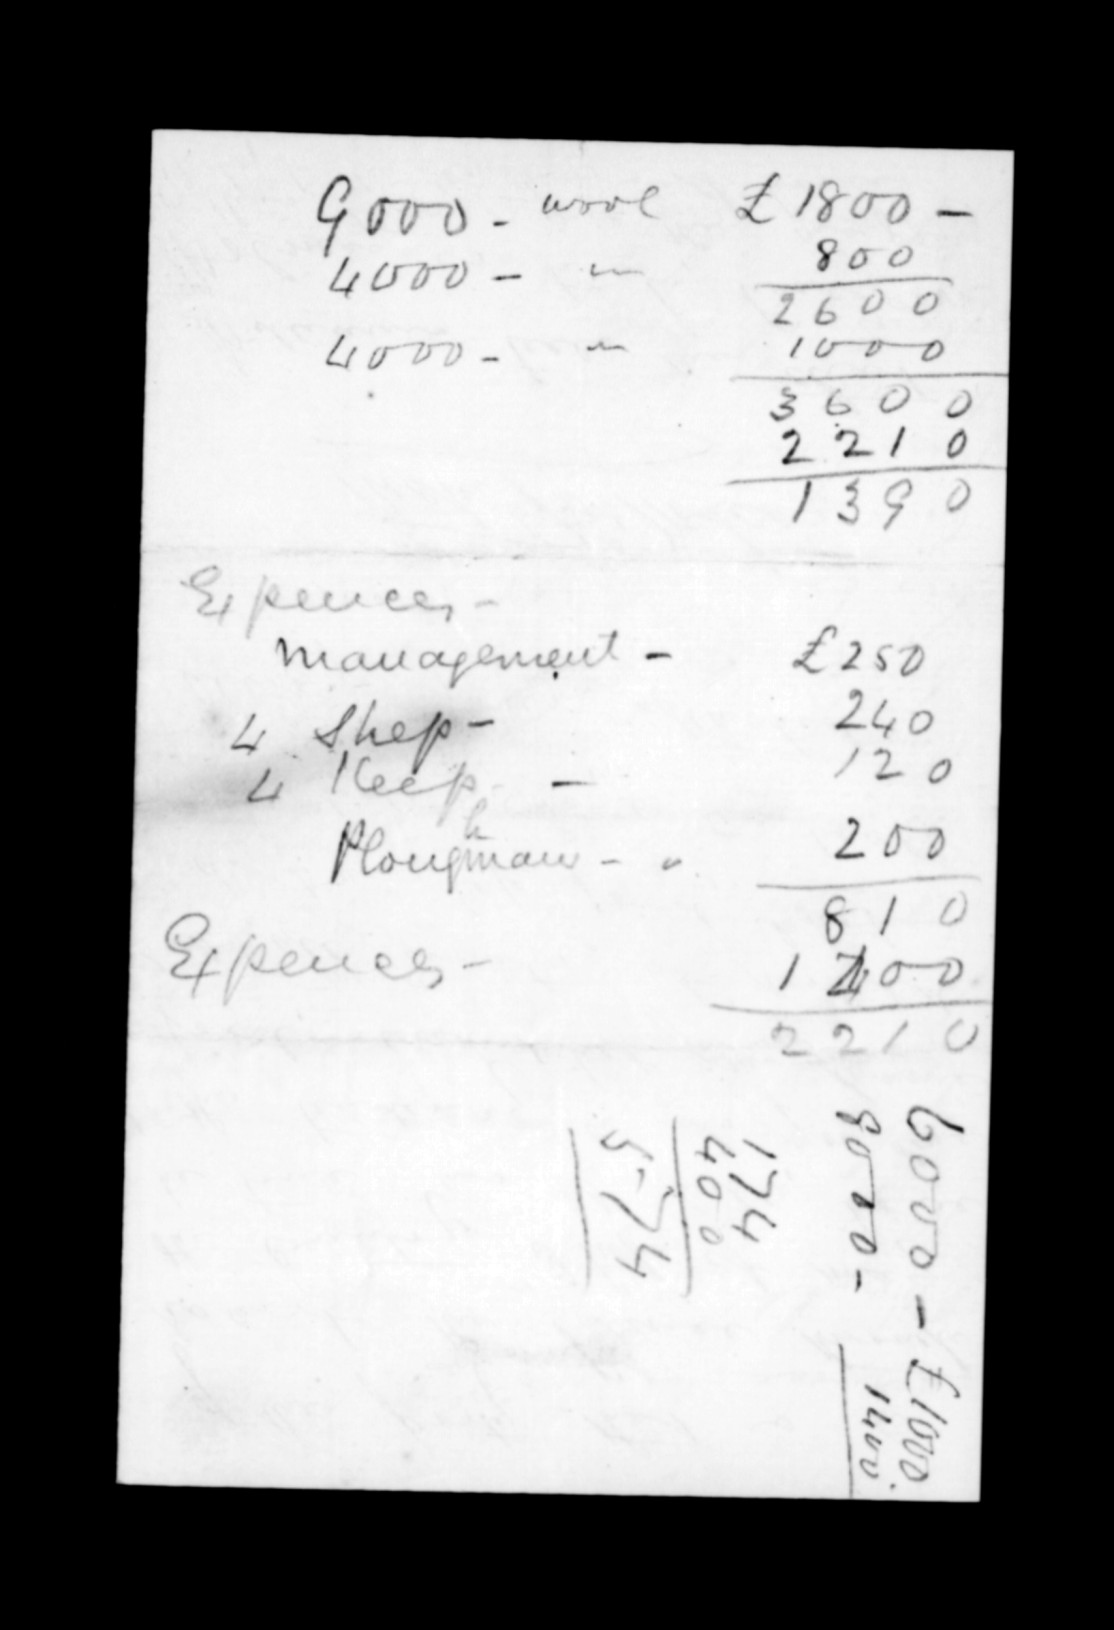 9000 - wool £1800 -
4000 - " 800
2600
4000 - " 1000
3600
2210
1390
Expences -
management - £250
4 Shep - 240
4 Keep - 120
Ploughman - " 200
810
Expences - 1400
2210
6000 - £1000
9000 - 1400
174
400
574